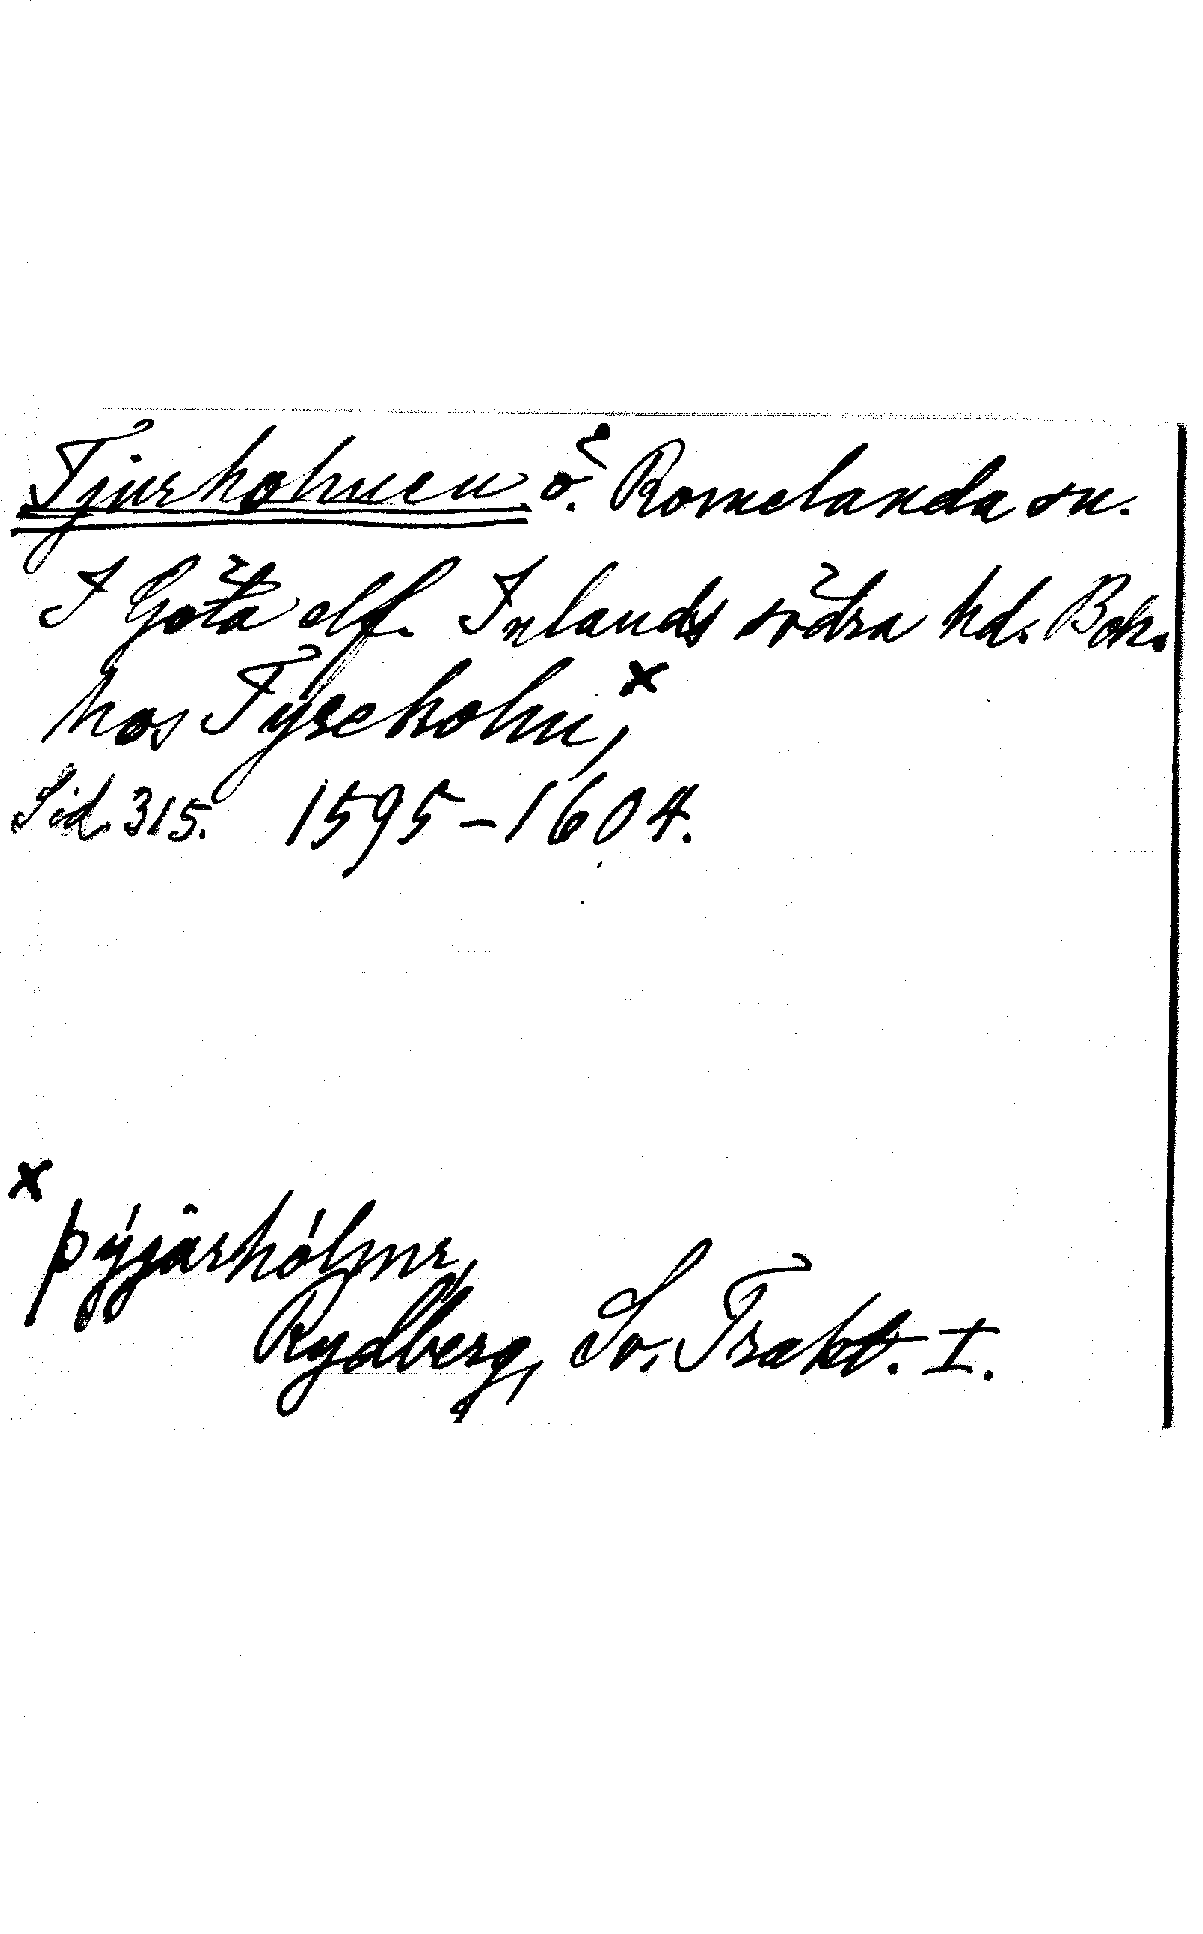 Tjurholmen ö. Romelanda sn.
I Göta elf. Inlands södra hd. Boh.
hos Tyreholm,ˣ
Sid. 315. 1595–1604.
x
þýjárhólmr,
Rydberg, Sv. Trakt. I.